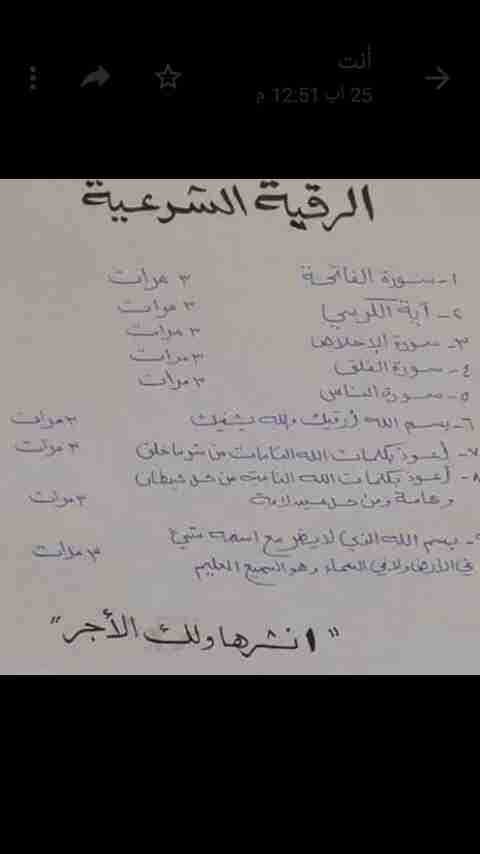 أنت
25 آب 12:51 م
الرقية الشرعية
١- سورة الفاتحة ٣ مرات
٢- آية الكرسي ٣ مرات
٣- سورة الإخلاص ٣ مرات
٤- سورة الفلق ٣ مرات
٥- سورة الناس ٣ مرات
٦- بسم الله أرقيك والله يشفيك ٣ مرات
٧- أعوذ بكلمات الله التامات من شر ما خلق ٣ مرات
٨- أعوذ بكلمات الله التامة من كل شيطان
وهامة ومن كل عين لامة ٣ مرات
٩- بسم الله الذي لا يضر مع اسمه شيئ
في الأرض ولا في السماء وهو السميع العليم ٣ مرات
"انشرها ولك الأجر"